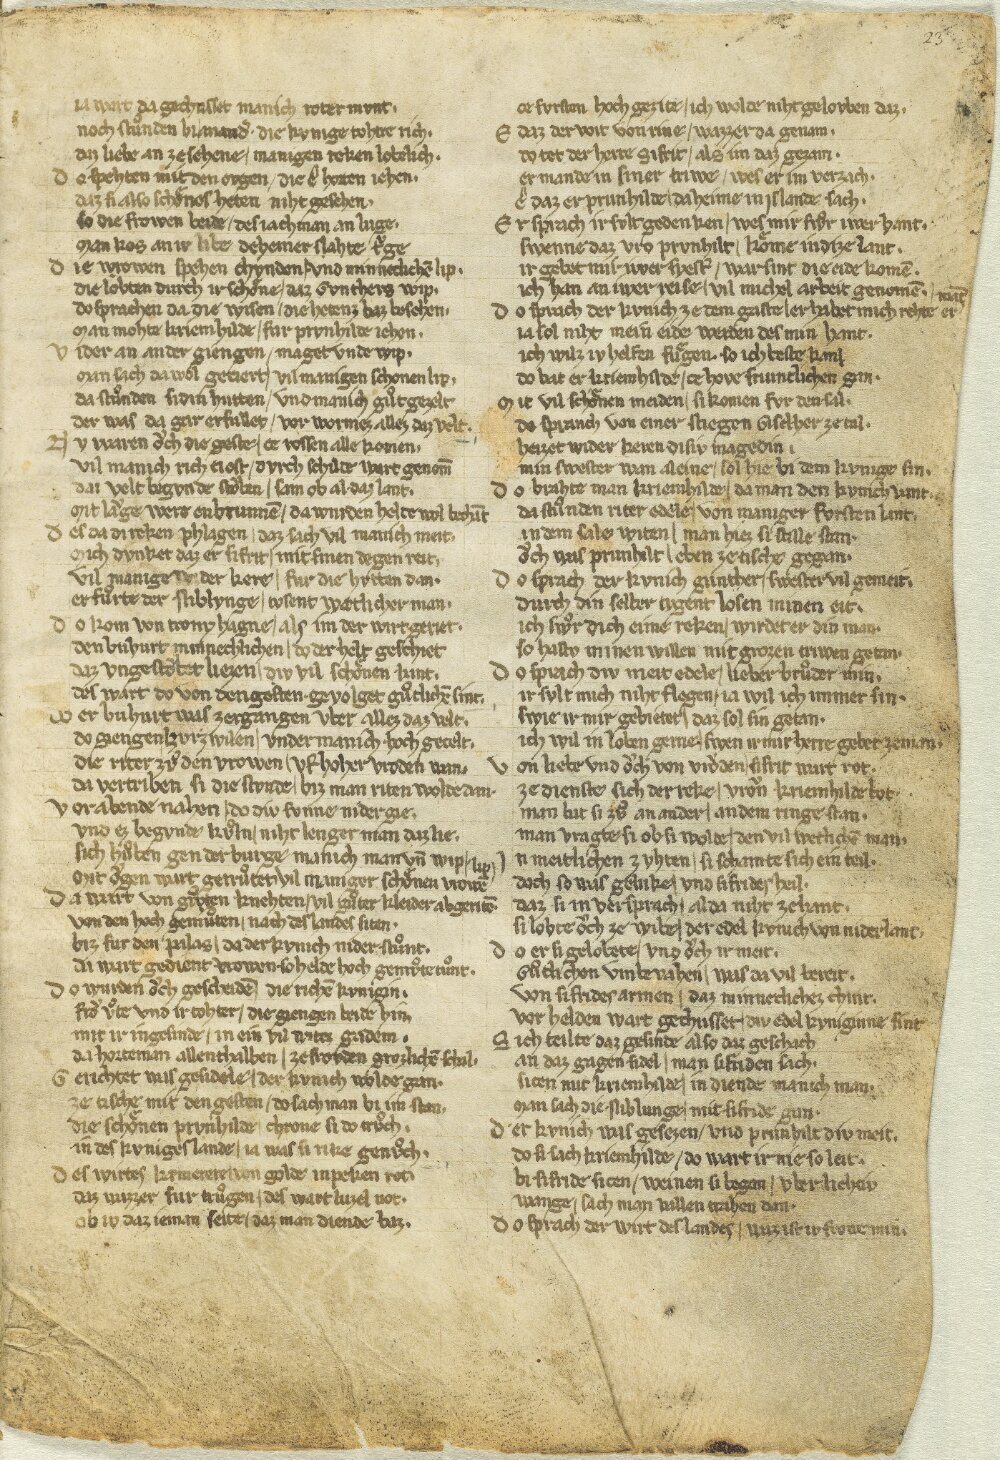 23
ia wart da gechusset manich roter mvnt.
noch stůnden bi einand̾. die kvnige tohter rich.
daz liebe an ze sehene / manigen reken lobelich.
D o spehten mit den ovgen / die ê horten iehen.
daz si also schônes heten niht gesehen.
so die frowen beide / des iach man an luge.
man kos an ir libe deheiner slahte trvge
D ie vrowen spehen chvnden / vnd minneclichē lip.
die lobten durch ir schone / daz Gvnthers wip.
do sprachen da die wisen / die hetenz baz besehen.
man mohte kriemhilde / fur prvnhilde iehen.
V ider an ander giengen / maget vnde wip.
man sach da wol geziert / vil manigen schonen lip.
da stůnden sidin hutten / vnd manich gůt gezelt
der was da gar erfullet / vor wormez allez daz velt.
N v waren ŏch die geste / ce rossen alle komen.
vil manich rich tiost / dvrch schilde wart genom̄
daz velt begvnde stŏben / sam ob al daz lant.
mit lŏge were enbrunnen / da wurden helde wol bechāt
D es da di reken phlagen / daz sach vil manich meit.
mich dvnket daz er sifrit / mit sinen degen reit.
vil manige widerkere / fur die hvtten dan.
er fůrte der niblvnge / tusent wætlicher man.
D o kom von trony hagne / als im der wirt geriet.
den buhurt minnechlichen / do der helt geschiet
daz vngestŏbet liezen / div vil schŏnen kint.
des wart do von den gesten gevolget gůtlichē sint.
D er buhurt was zergangen vber allez daz velt.
do giengen kvrzwilen / vnder manich hoch gecelt.
die riter zů den vrowen / vf hoher vroden wan.
da vertriben si die stvnde / biz man riten wolde dan.
V or abende nahen / do div sunne nider gie.
vnd ez begvnde kůln / niht lenger man daz lie.
sich hůben gen der burge manich man vn̄ wip / lip
mit ŏgen wart getrůtet vil maniger schŏnen vrowē
D a wart von gůten knehten / vil gůter kleider abgeritē.
von den hoch gemůten / nach des landes siten.
biz fur den palas / da der kvnich nider stůnt.
da wart gedient vrowen so helde hoch gemůte tůnt.
D o wurden ŏch gescheidē / die richē kvnigin.
frŏ v̊te vnd ir tohter / die giengen beide hin.
mit ir ingesinde / in ein vil witez gadem.
da horte man allenthalben / ze frovden grozlichē schal.
G erichtet was gesidele / der kvnich wolde gan.
ze tische mit den gesten / do sach man bi im stan.
die schŏnen prvnhilde / chrone si do trŏch.
in des kvniges lande / ia was si riche genŏch.
D es wirtes kamerere von golde in peken rot
daz wazzer fur trůgen / des wart luzel not.
ob iv daz ieman seite / daz man diende baz.
ce fvrsten hoch gezite / ich wolde niht gelovben daz.
E daz der voit von rine / wazzer da genam.
do tet der herre Sifrit / als im daz gezam.
er mande in siner triwe / wes er im verzach.
ê daz er prunhilde / da heime in islande sach.
E r sprach ir svlt gedenken / wes mir swŏr iwer hant.
swenne daz vro prvnhilt / kŏme in dize lant.
ir gebet mir iwer swest̾ / war sint die eide komē.
ich han an iwer reise / vil michel arbeit genomē.
D o sprach der kvnich ze dem gaste / er habet mich rehte er / mant
ia sol niht mein eide werden des min hant.
ich wilz iv helfen fůgen. so ich beste kan.
do bat er kriemhilde / ce hove friuntlichen gan.
M it vil schŏnen meiden / si komen fvr den sal.
do spranch von einer stiegen Giselher ze tal.
heizet wider keren disiv magedin.
min swester wan aleine / sol hie bi dem kvnige sin.
D o brahte man kriemhilde / da man den kvnich vant.
da stůnden riter edele / von maniger fvrsten lant.
in dem sale witen / man hiez si stille stan.
ŏch was prunhilt / eben ze tische gegan.
D o sprach der kvnich gunther / swester vil gemeit.
durch din selber tugent losen minen eit.
ich swŏr dich eime reken / wirdet er din man.
so hastv minen willen mit grozen triwen getan.
D o sprach div meit edele / lieber brůder min.
ir svlt mich niht flegen / ia wil ich immer sin.
swie ir mir gebietet / daz sol sin getan.
ich wil in loben gerne / swen ir mir herre gebet ze man.
V on liebe vnd ŏch von vrŏden / sifrit wart rot.
ze dienste sich der reke / vron kriemhilde bot.
man bat si zů an ander / an dem ringe stan.
man vragte si ob si wolde / den vil wetlichē man.
I n meitlichen zvhten / si schamte sich ein teil.
doch so was gelvke / vnd sifrides heil.
daz si in versprach / al da niht zehant.
si lobte ŏch ze wibe / der edel kvnich von niderlant.
D o er si gelobete / vnd ŏch ir meit.
gůtlichen vmbevahen / was da vil bereit.
von sifrides armen / daz minneclichez chint.
vor helden wart gechusset div edel kvniginne sint
S ich teilte daz gesinde also daz geschach
an daz gagen sidel / man sifriden sach.
sitcen mit kriemhilde / in diende manich man.
man sach die niblunge / mit sifride gan.
D er kvnich was gesezen / vnd prunhilt div meit.
do si sach kriemhilde / do wart ir nie so leit.
bi sifride sitcen / weinen si began / vber liehtiv
wange / sach man vallen trahen dan.
D o sprach der wirt des landes / waz ist ir frowe min.